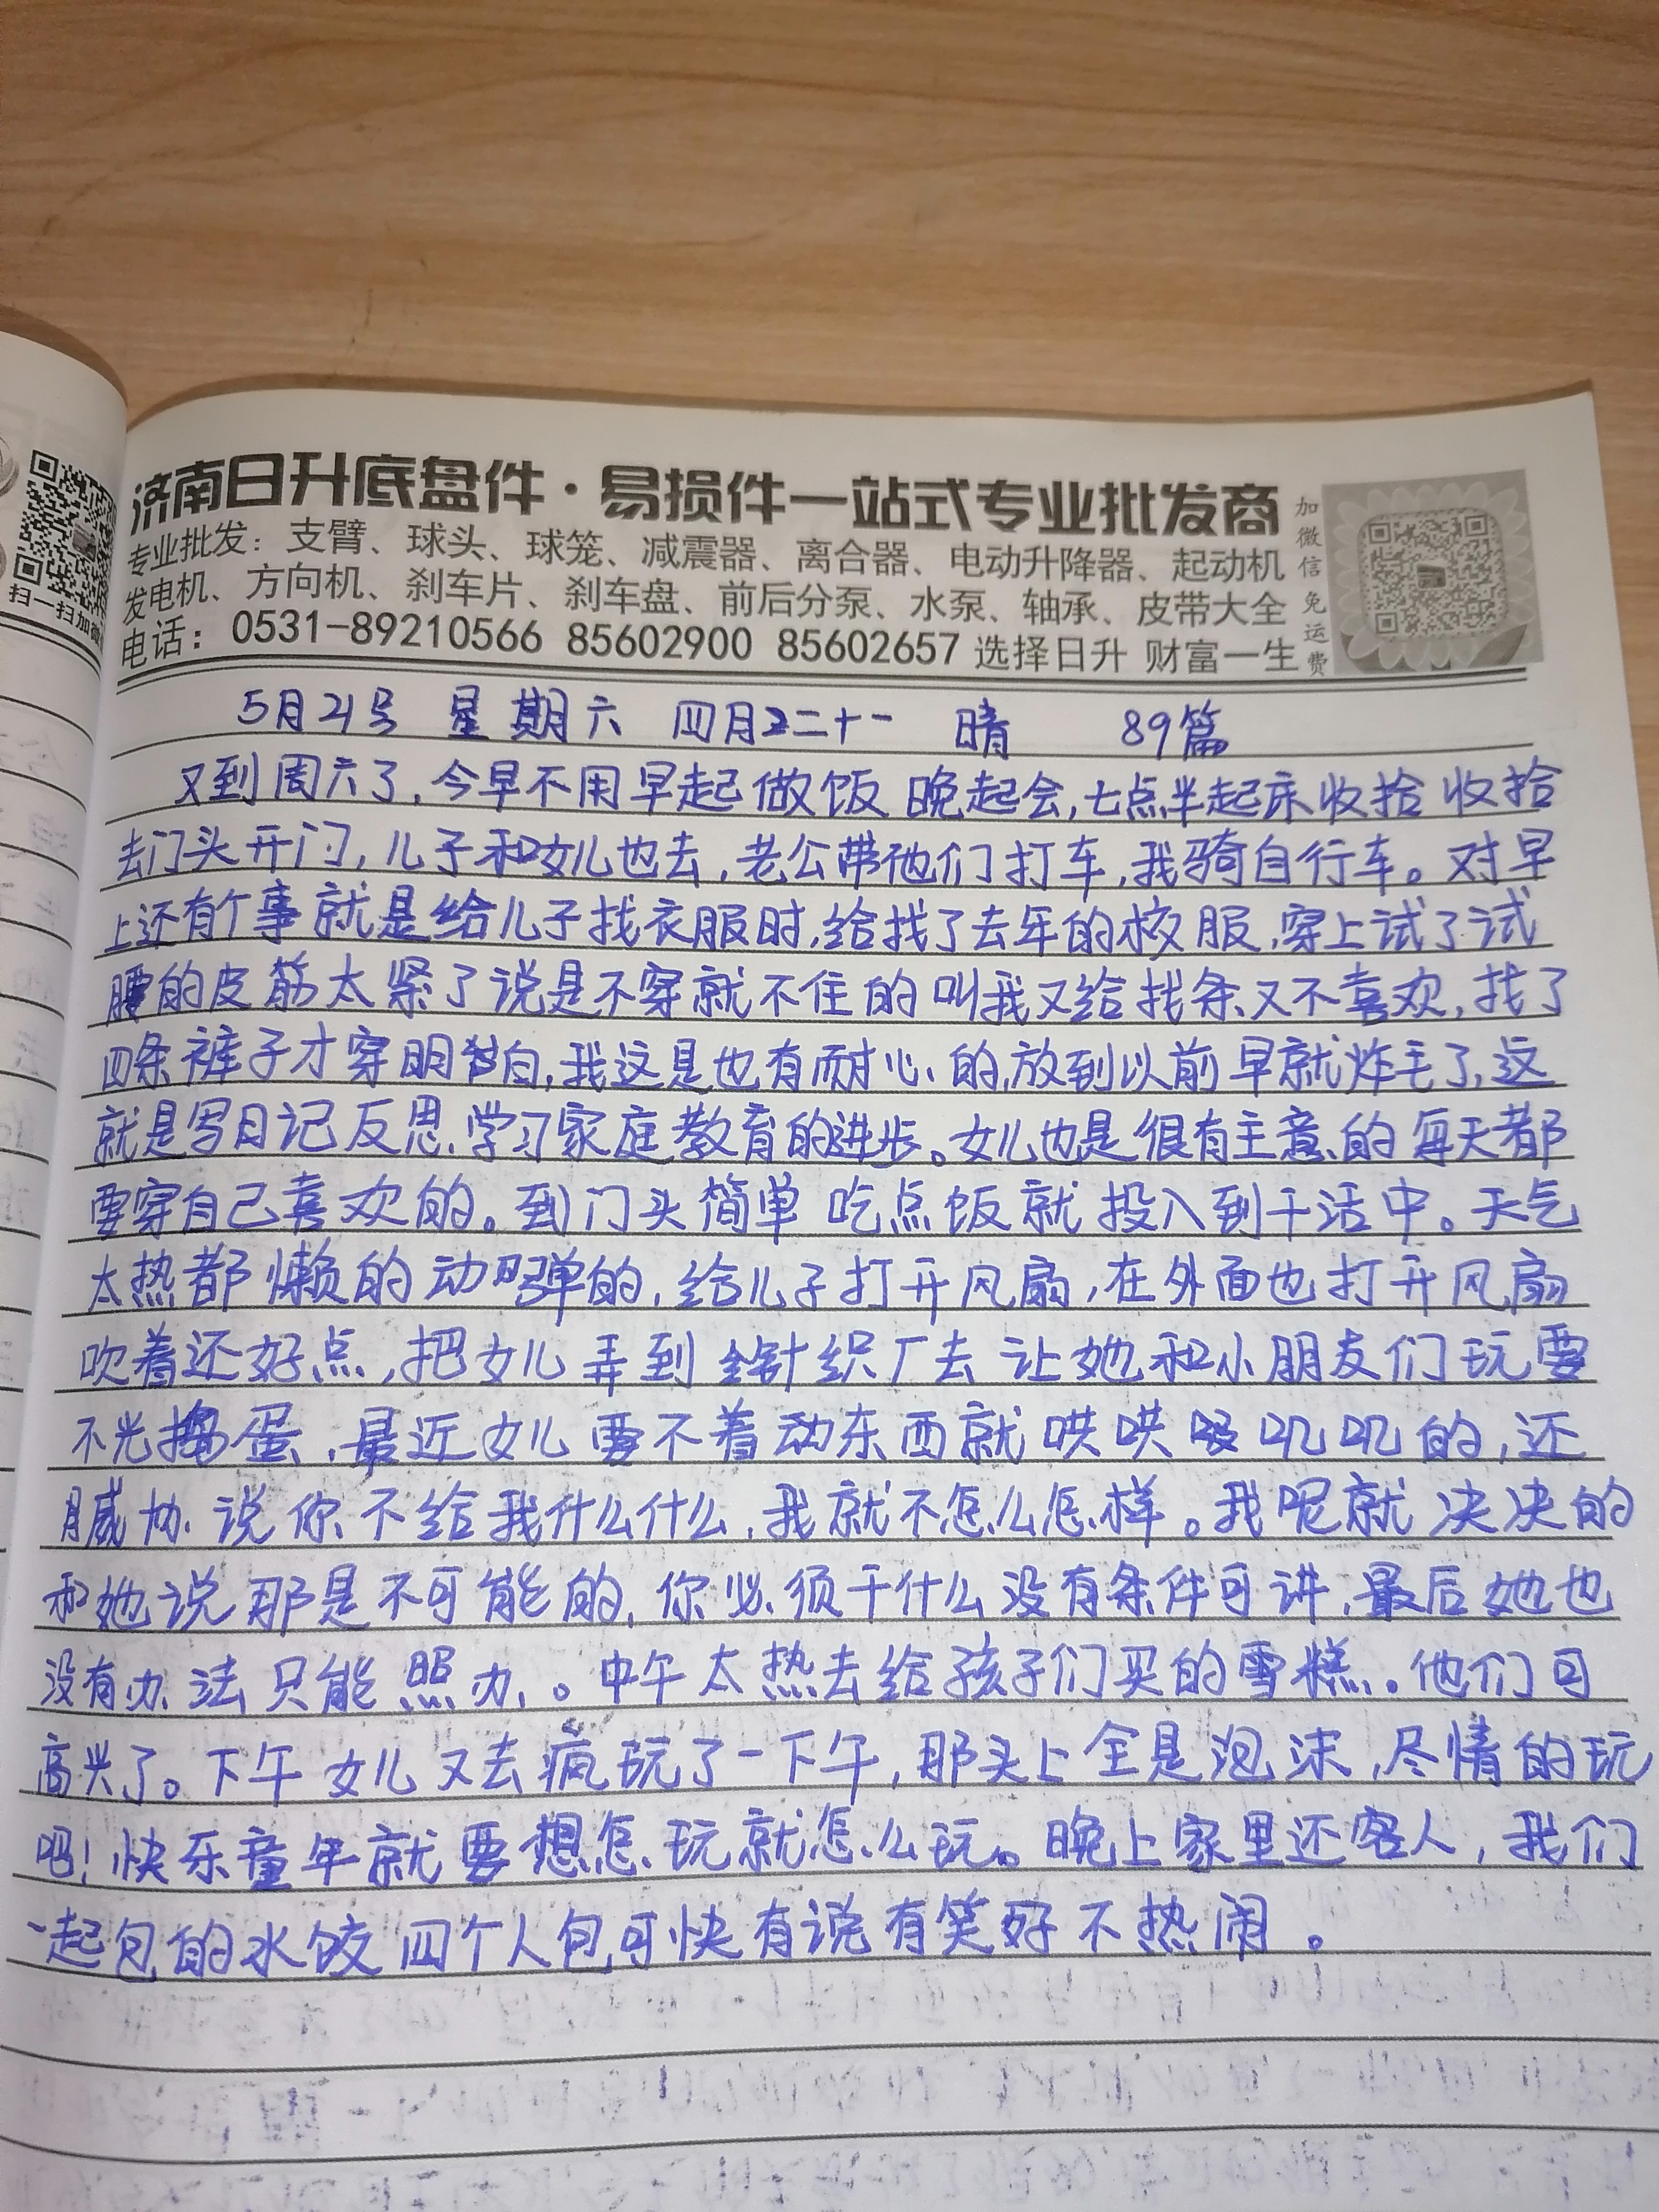 济南日升底盘件·易损件一站式专业批发商
专业批发：支臂、球头、球笼、减震器、离合器、电动升降器、起动机
发电机、方向机、刹车片、刹车盘、前后分泵、水泵、轴承、皮带大全
电话：0531-89210566 85602900 85602657 选择日升 财富一生
加微信免运费
扫一扫加微
5月21号 星期六 四月二十一 晴 89篇
又到周六了,今早不用早起做饭 晚起会,七点半起床收拾收拾
去门头开门,儿子和女儿也去,老公带他们打车,我骑自行车。对早
上还有个事就是给儿子找衣服时,给找了去年的校服,穿上试了试
腰的皮筋太紧了说是不穿就不住的叫我又给找条又不喜欢,找了
四条裤子才穿明白,我这是也有耐心的,放到以前早就炸毛了,这
就是写日记反思、学习家庭教育的进步。女儿也是很有主意的每天都
要穿自己喜欢的。到门头简单吃点饭就投入到干活中。天气
太热都懒的动弹的,给儿子打开风扇,在外面也打开风扇
吹着还好点,把女儿弄到针织厂去让她和小朋友们玩要
不光捣蛋,最近女儿要不着动东西就哄哄叽叽的,还
威协说你不给我什么什么,我就不怎么怎样。我呢就决决的
和她说那是不可能的,你必须干什么没有条件可讲,最后她也
没有办法只能照办。中午太热去给孩子们买的雪糕。他们可
高兴了。下午女儿又去疯玩了一下午,那头上全是泡沫,尽情的玩
吧!快乐童年就要想怎玩就怎么玩。晚上家里还客人,我们
一起包的水饺四个人包可快有说有笑好不热闹。